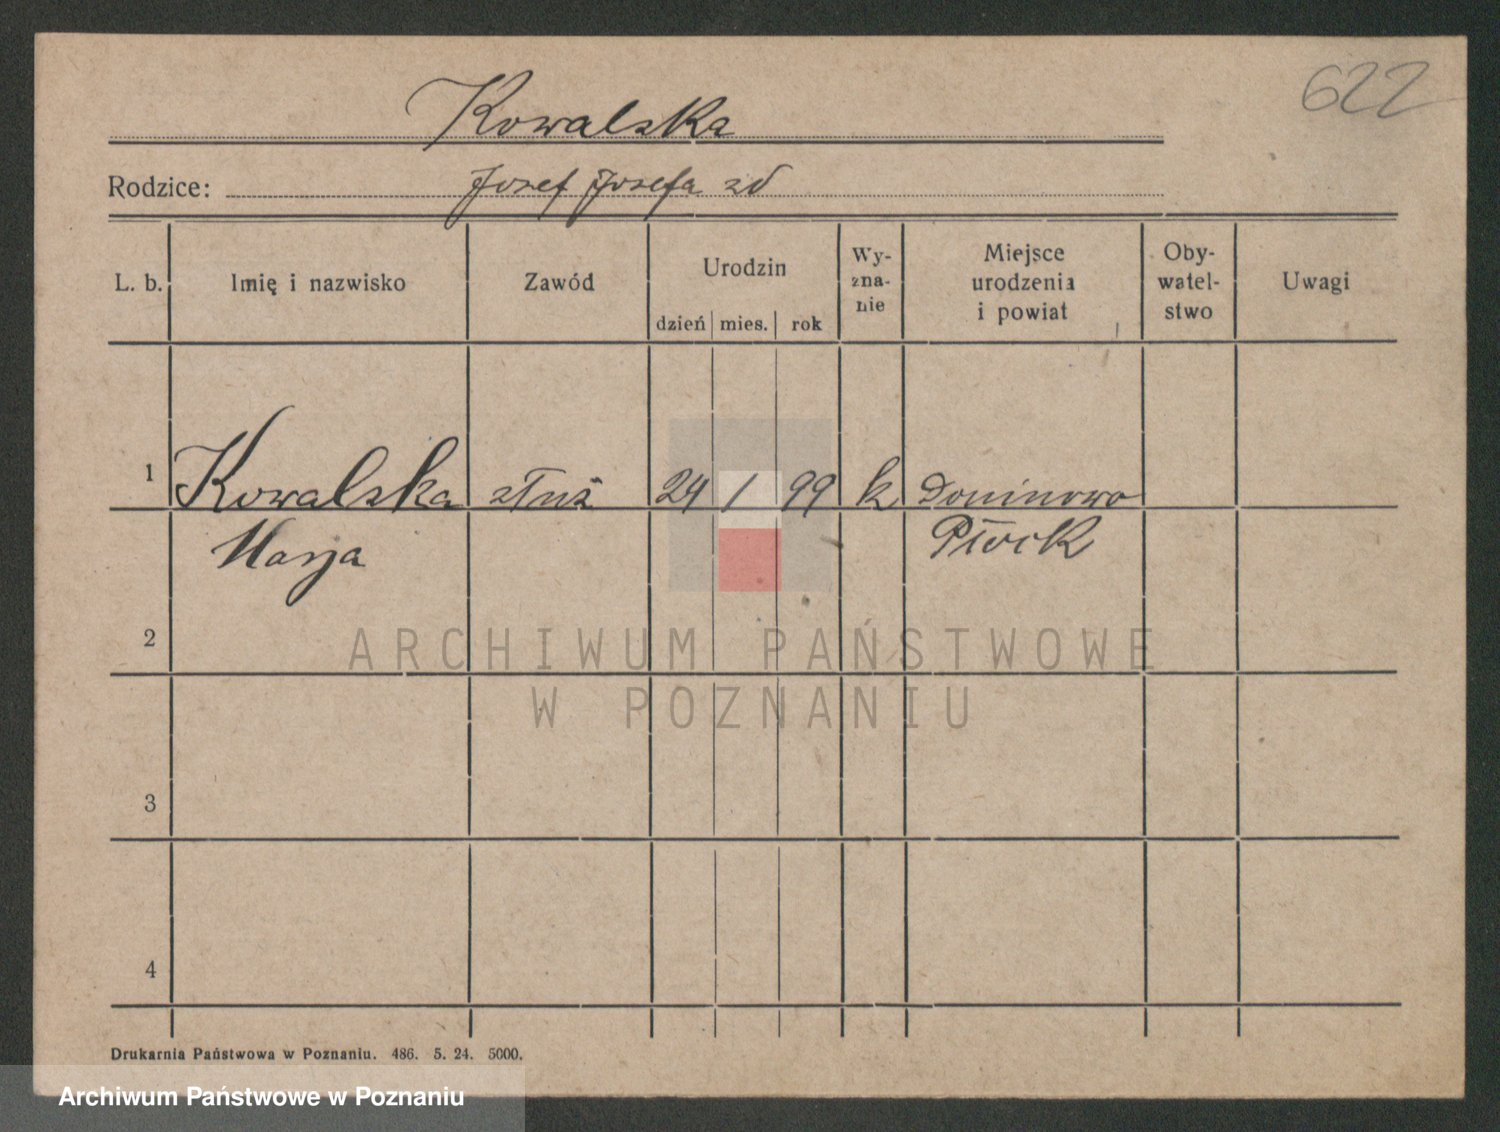 622
Kowalska
Rodzice: Josef Josefa zd
L. b. Imię i nazwisko Zawód Urodzin dzień mies. rok Wy-zna-nie Miejsce urodzenia i powiat Oby-watel-stwo Uwagi
1 Kowalska służ 24 1 99 k Doninowo
Marja Płock
2
3
4
ARCHIWUM PAŃSTWOWE
W POZNANIU
Drukarnia Państwowa w Poznaniu. 486. 5. 24. 5000.
Archiwum Państwowe w Poznaniu